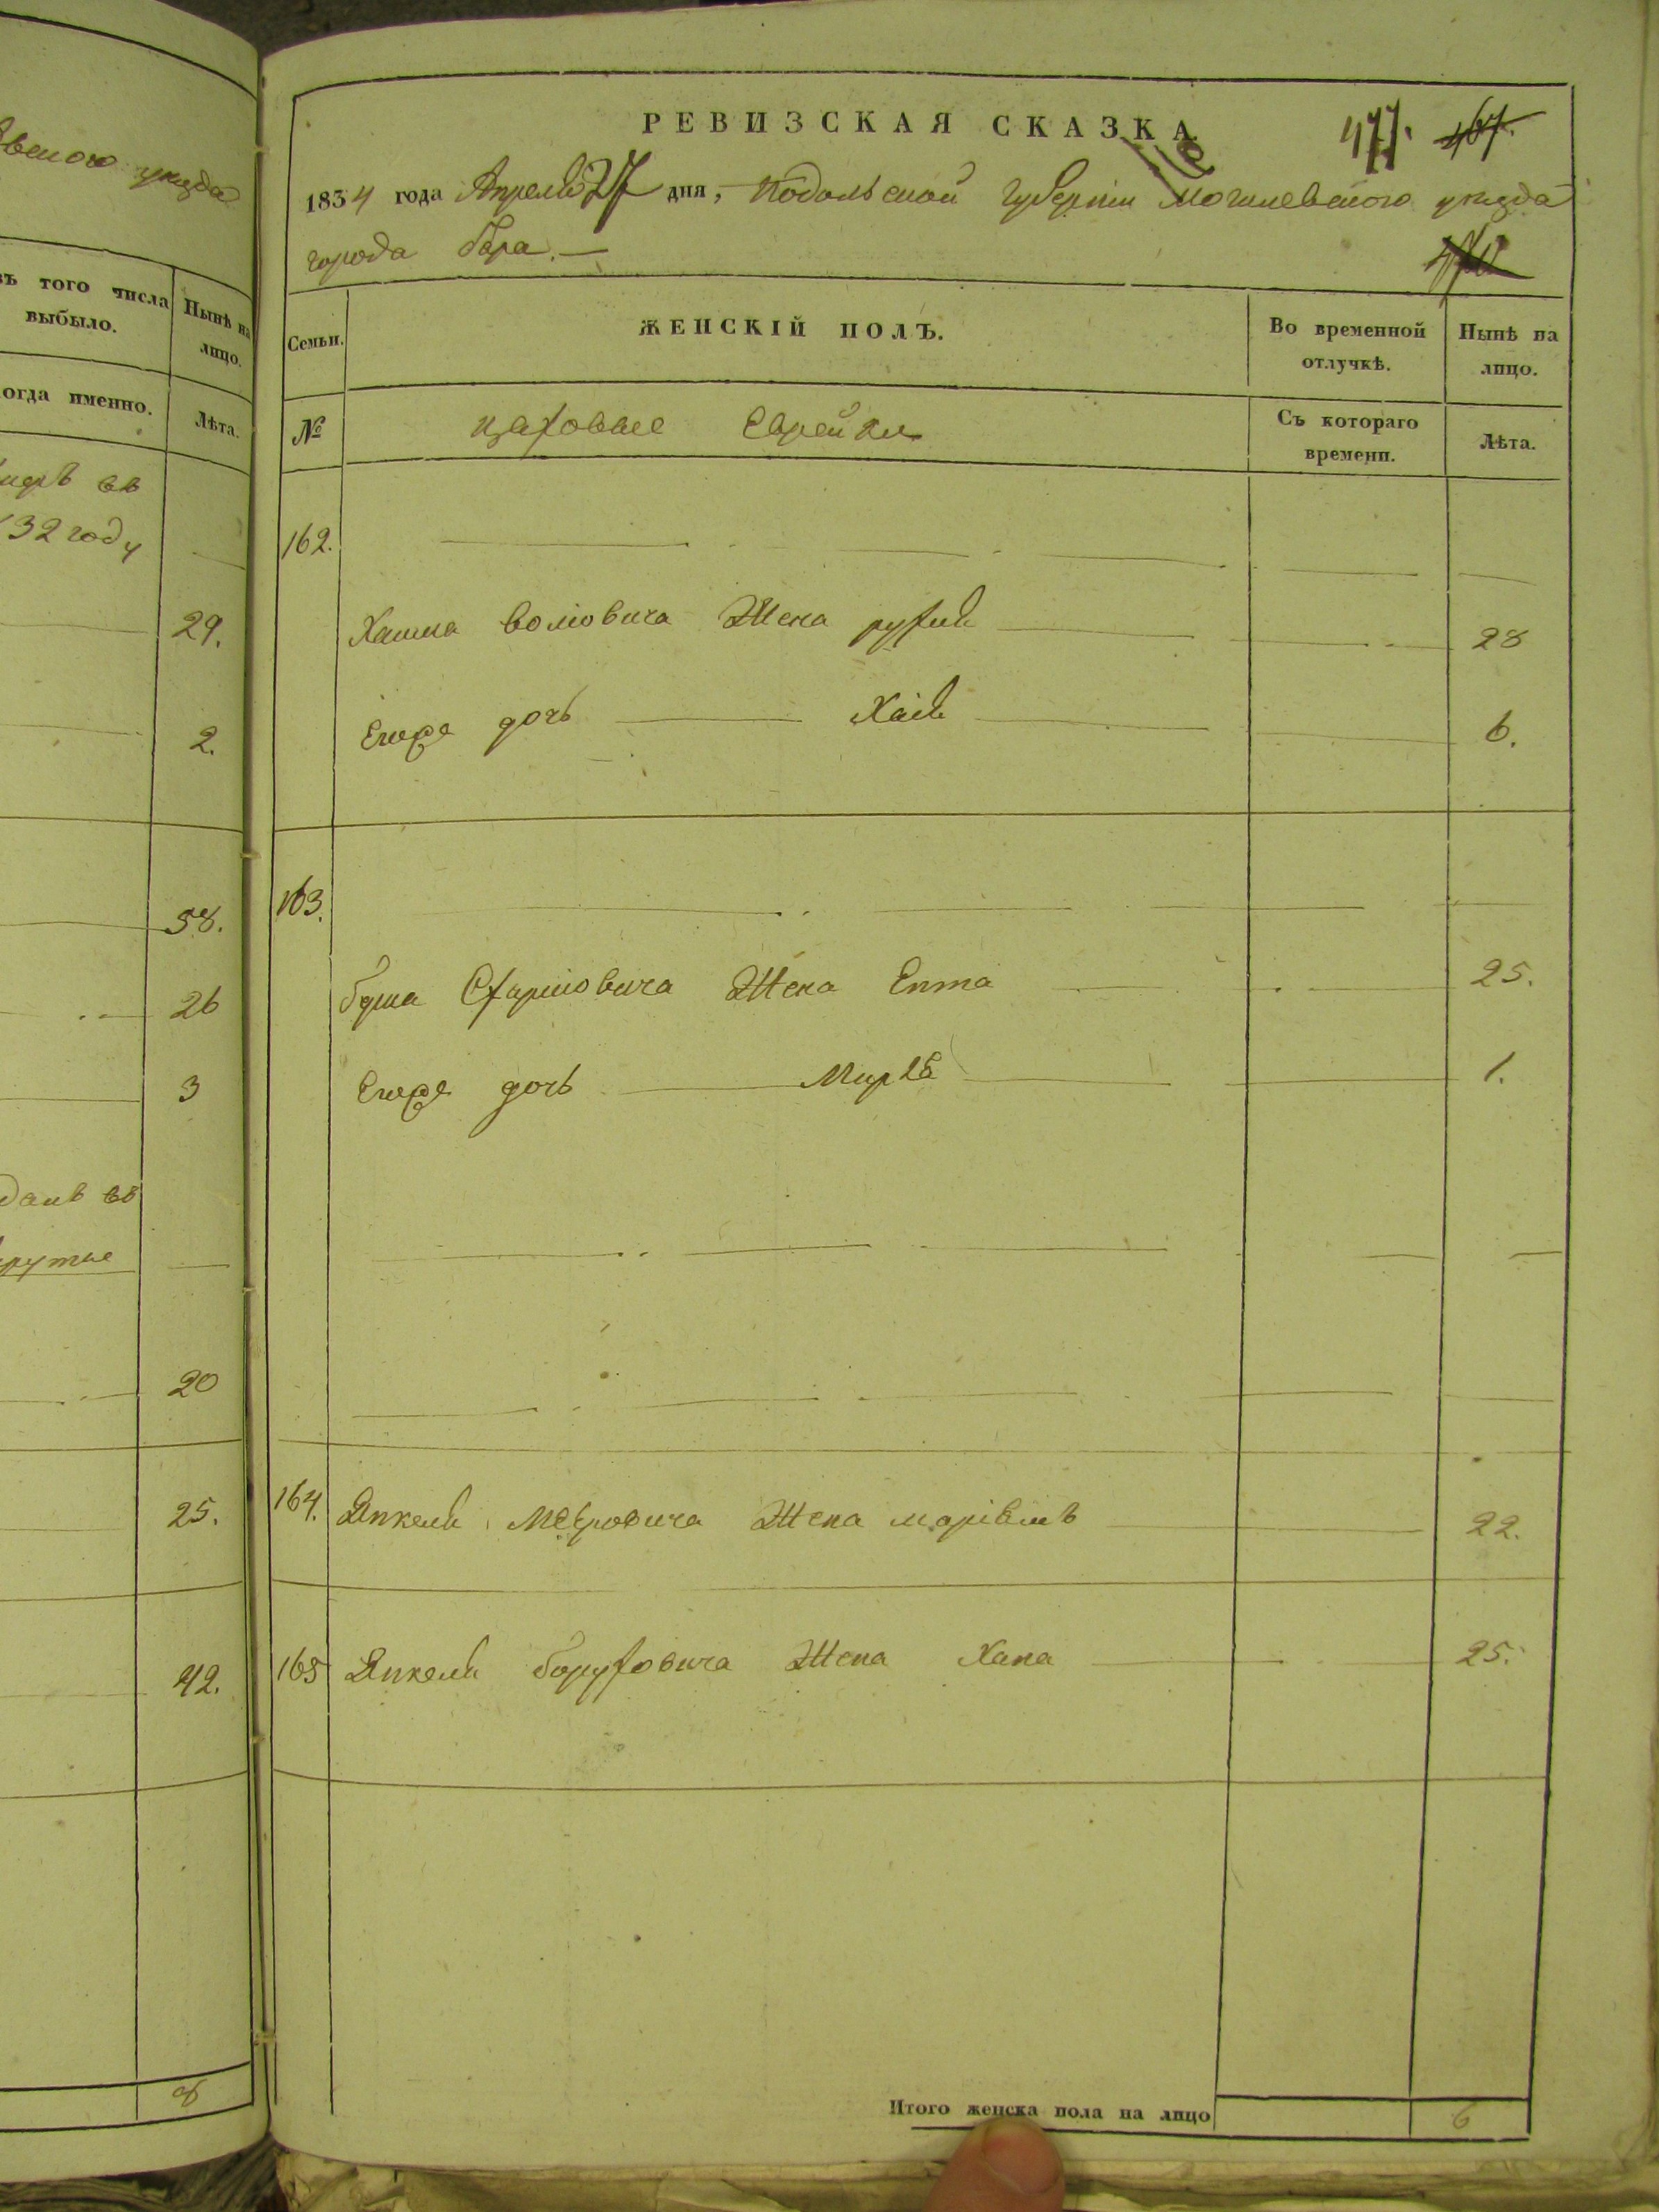 вского уезда
въ того числа выбыло.
Нынѣ на лицо.
огда именно.
Лѣта.
въ
32 году
29.
2.
58.
26
3
данъ въ
20
25.
42.
8
РЕВИЗСКАЯ СКАЗКА
477. 467.
1834 года Апреля 27 дня, Подольской Губернии Могилевского уезда
города Бара. —
Семьи.
ЖЕНСКІЙ ПОЛЪ.
Во временной отлучкѣ.
Нынѣ на лицо.
№
цеховые Еврейки
Съ котораго времени.
Лѣта.
162.
Жена Рухля 28
Его дочь Хая 6.
163.
Жена Ента 25.
Его дочь 1.
164. Янкеля Жена 22.
165 Янкеля Боруховича Жена Хана 25.
Итого женска пола на лицо 6